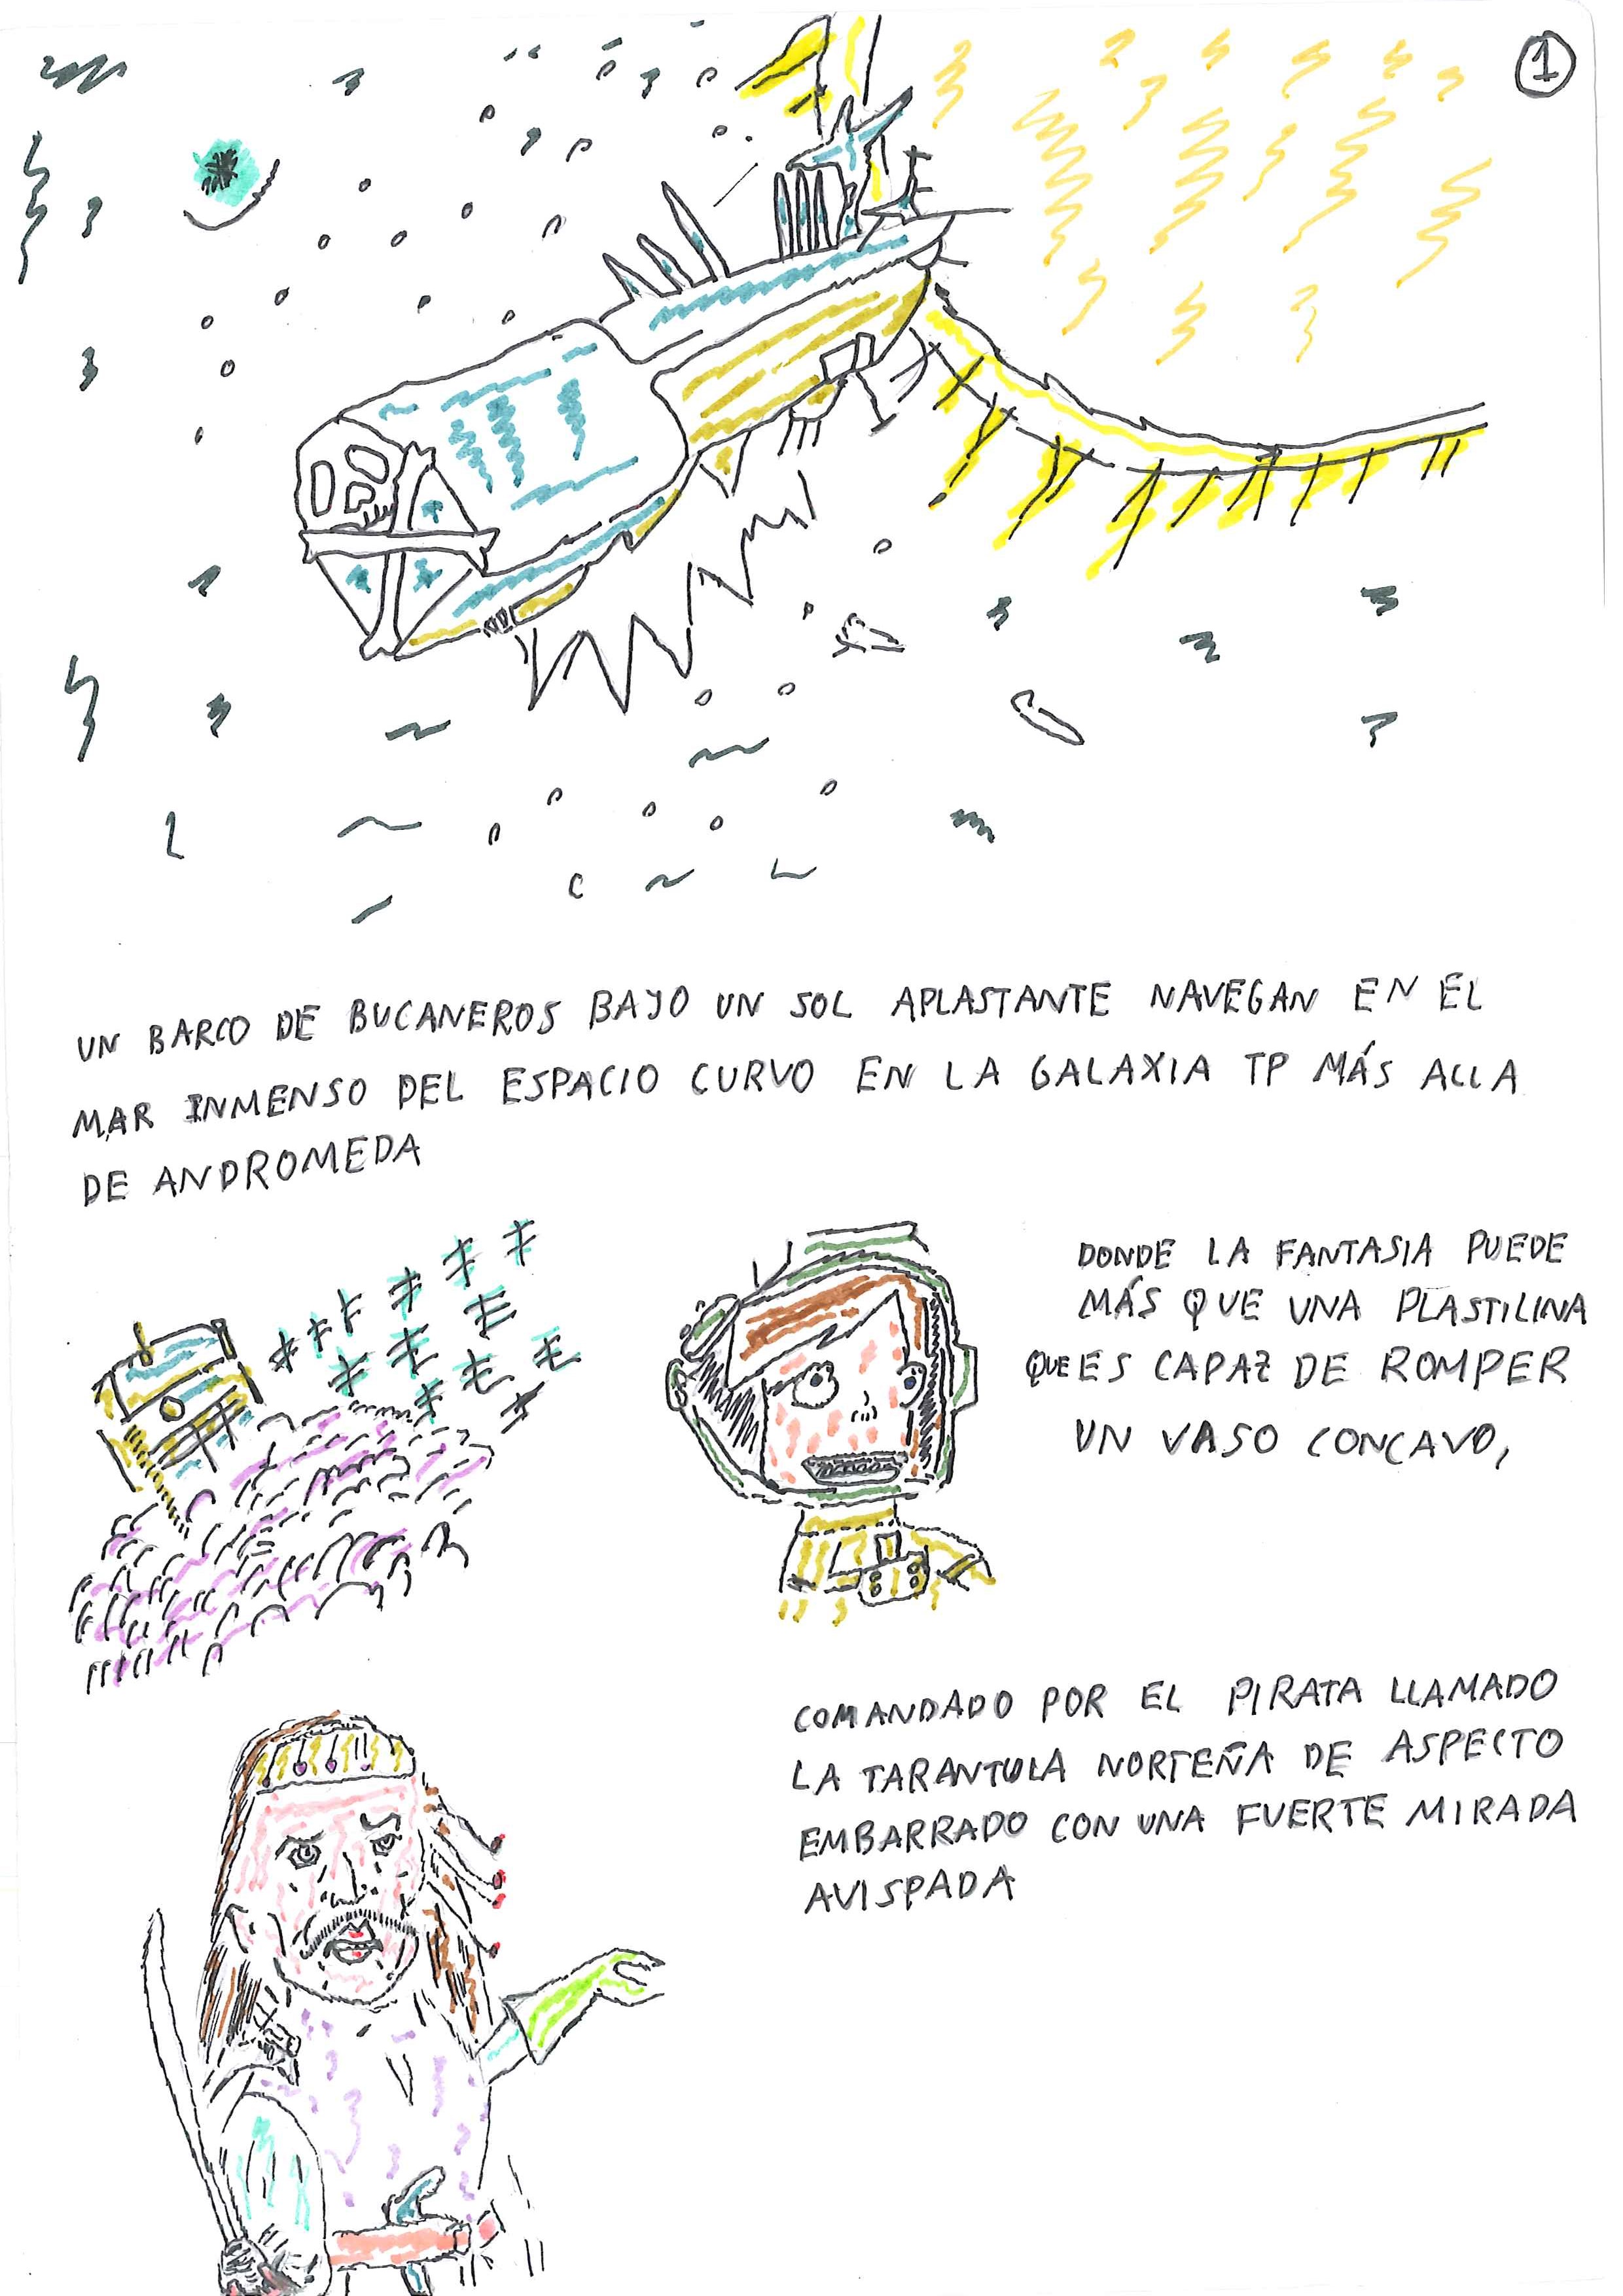 1
UN BARCO DE BUCANEROS BAJO UN SOL APLASTANTE NAVEGAN EN EL
MAR INMENSO DEL ESPACIO CURVO EN LA GALAXIA TP MÁS ALLA
DE ANDROMEDA
DONDE LA FANTASIA PUEDE
MÁS QUE UNA PLASTILINA
QUE ES CAPAZ DE ROMPER
UN VASO CONCAVO,
COMANDADO POR EL PIRATA LLAMADO
LA TARANTULA NORTEÑA DE ASPECTO
EMBARRADO CON UNA FUERTE MIRADA
AVISPADA